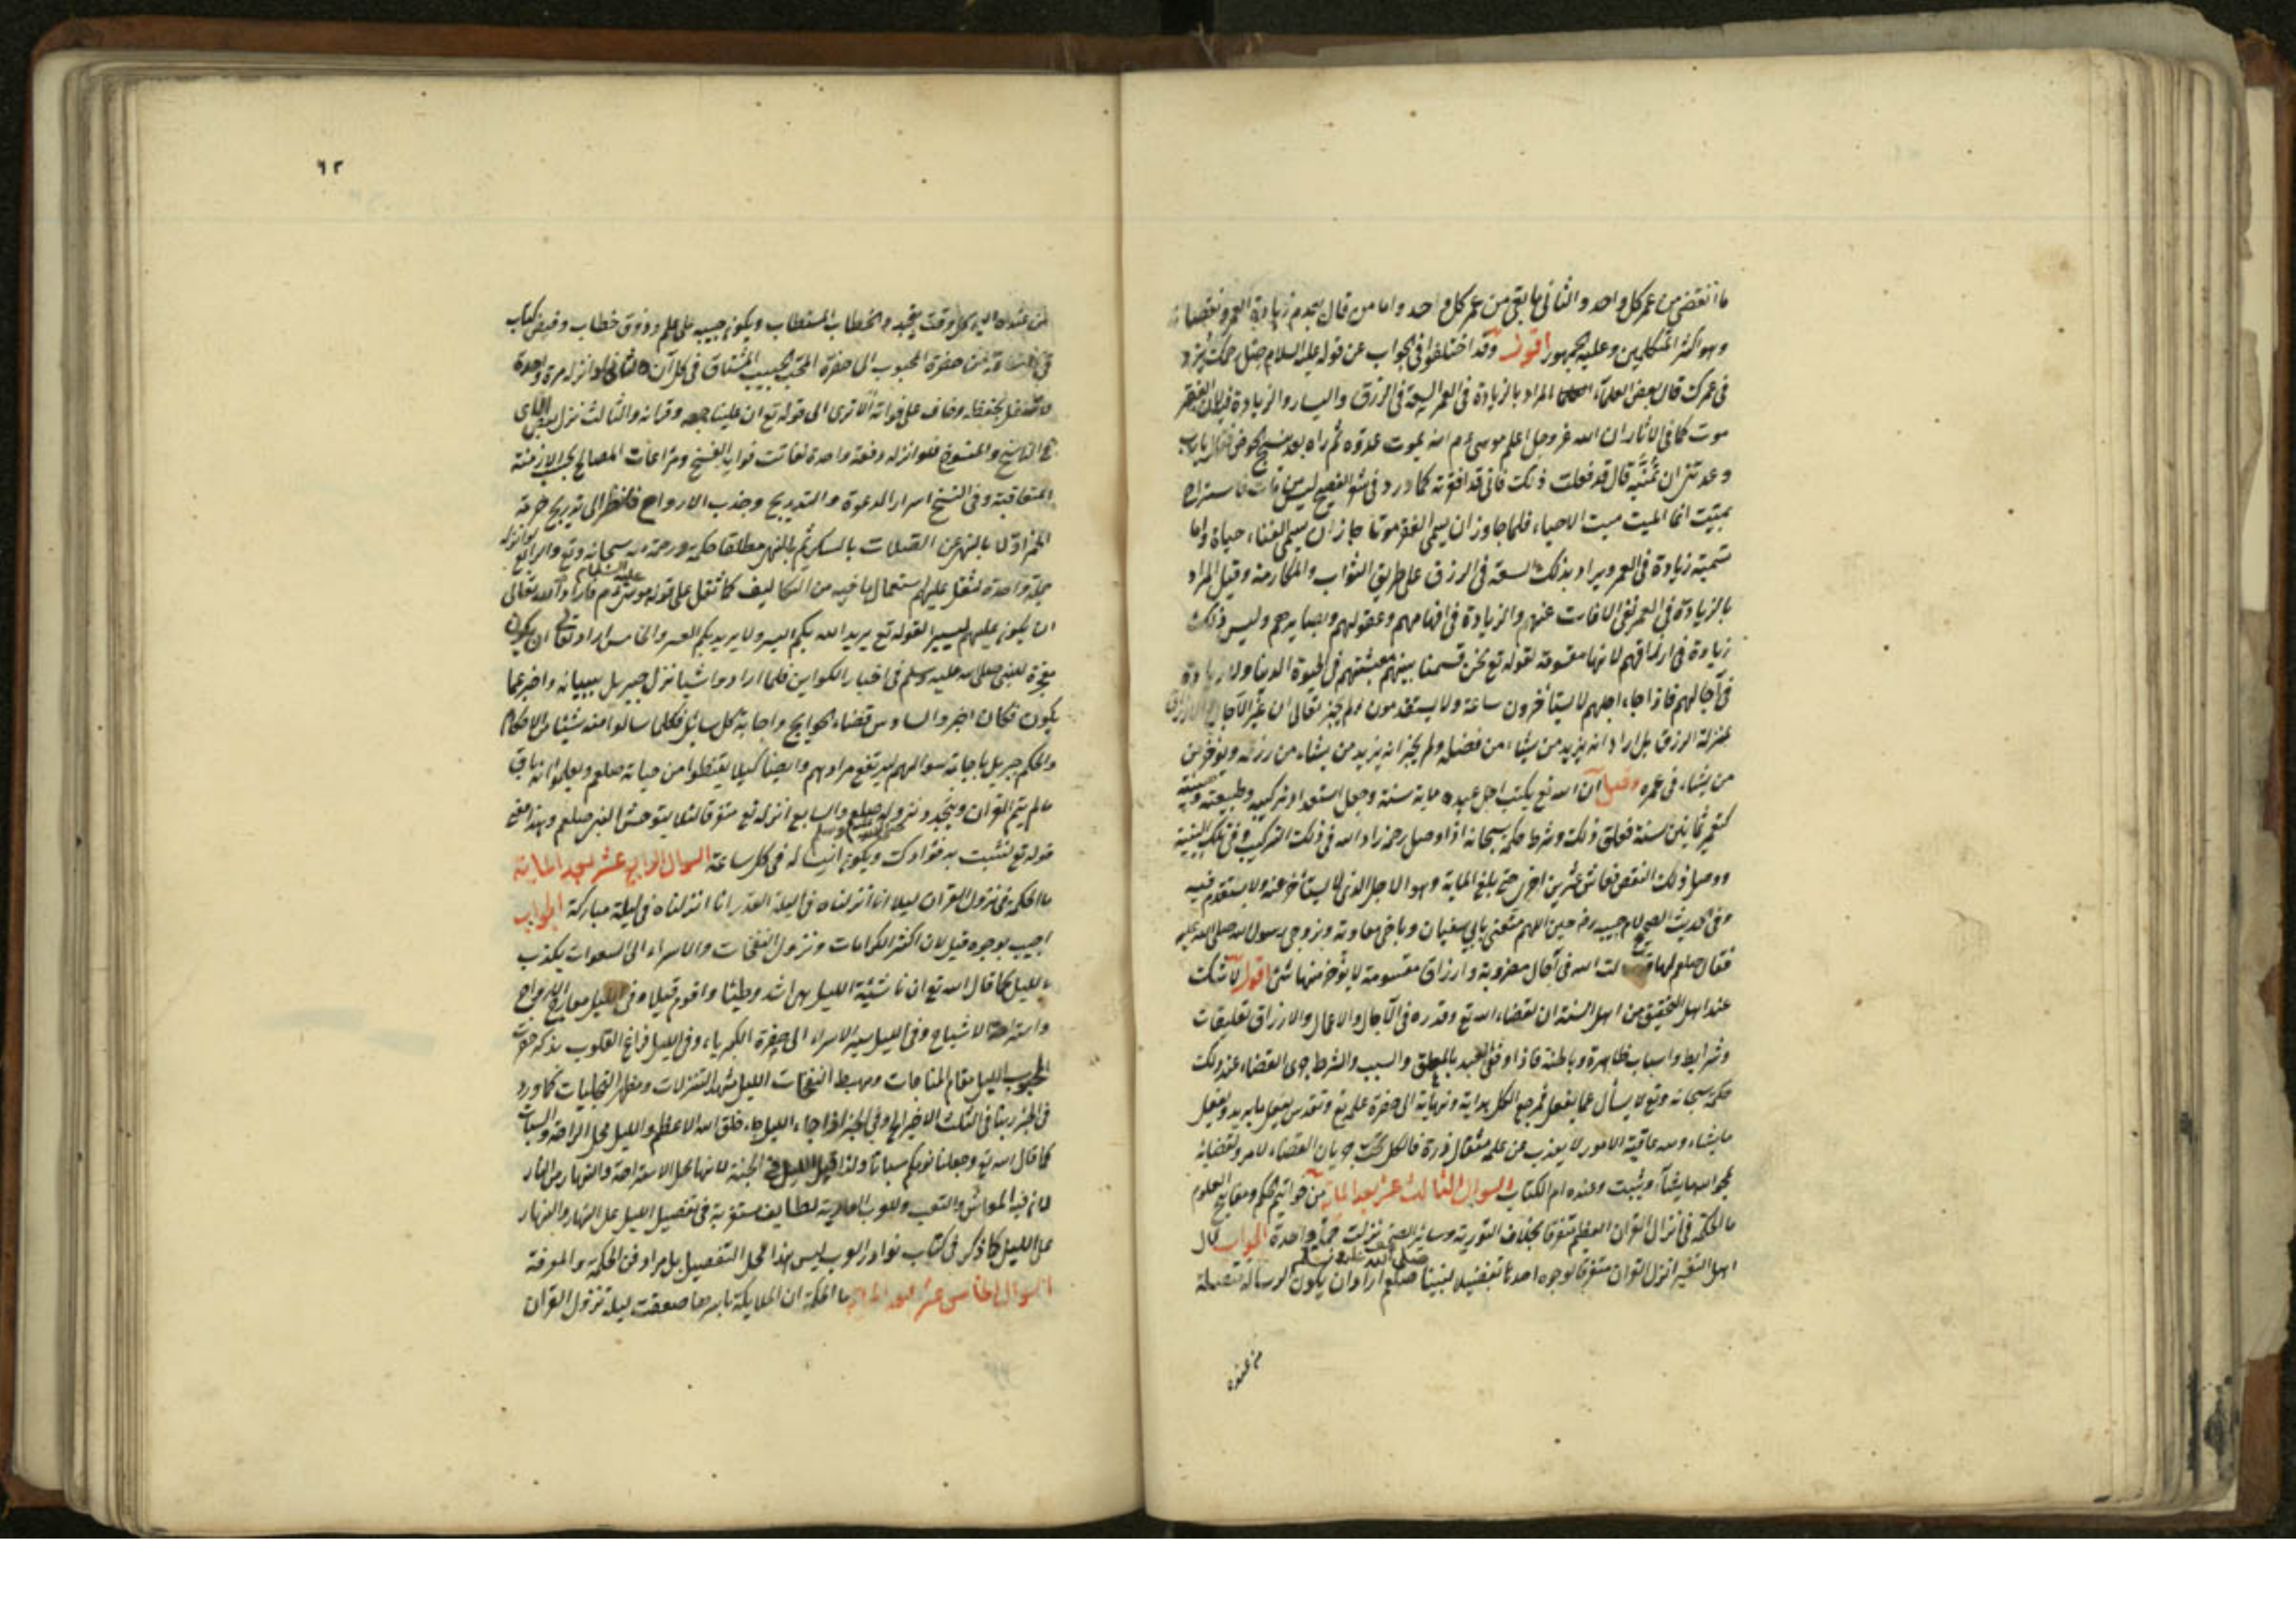 ما انقضى من عمر كل واحد والثانى ما بقى من عمر كل واحد واما من قال بعدم زيادة العمر ونقصانه
وهو اكثر المتكلمين وعليه الجمهور اقول وقد اختلفوا فى الجواب عن قوله عليه السلام صل رحمك يزد
فى عمرك قال بعض العلماء المراد بالزيادة فى العمر السعة فى الرزق واليسار والزيادة فيه لان الفقر
موت كما فى الاثار ان الله عز وجل اعلم موسى عم انه يميت عدوه ثم راه بعد ينسج الخوص فقال يا رب
وعدتنى ان تميته قال قد فعلت ذلك فانى قد افقرته كما ورد فى شعر الفصيح ليس من مات فاستراح
بميت انما الميت ميت الاحياء فلما جاوز ان يسمى الفقر موتا جاز ان يسمى الغناء حياة واما
تسميته زيادة فى العمر ويراد بذلك السعة فى الرزق على طريق الثواب والمكارمة وقيل المراد
بالزيادة فى العمر نفى الافات عنهم والزيادة فى افهامهم وعقولهم وبصايرهم وليس ذلك
زيادة فى ارزاقهم لانها مقسومة لقوله تع نحن قسمنا بينهم معيشتهم فى الحيوة الدنيا ولا زيادة
فى آجالهم فاذا جاء اجلهم لا يستأخرون ساعة ولا يستقدمون ولم يخبر تعالى ان غير الآجال
بمنزلة الرزق بل اراد انه يزيد من يشاء من فضله ولم يخبر انه يزيد من يشاء من رزقه ويؤخر من
من يشاء فى عمره وقيل ان الله تع يكتب اجل عبده ماية سنة وجعل استعداد تركيبه وطبيعته
كتعمير ثمانين سنة فعلق ذلك وشرط حكمه سبحانه اذا وصل رحمه زاد الله فى ذلك التركيب وفى تلك البنية
ووصل ذلك النقص فعاش عشرين اخرى حتى بلغ الماية وهو الاجل الذى لا يستأخر عنه ولا يستقدم فيه
وفى الحديث الصحيح لام حبيبة رض حين اللهم متعنى بابى سفيان وباخى معاوية وبزوجى رسول الله صلى الله عليه
فقال صلعم لها سألت الله فى آجال مضروبة وارزاق مقسومة لا يؤخر منها شئ اقول لا شك
عند اهل التحقيق من اهل السنة ان لقضاء الله تع وقدره فى الآجال والاعمال والارزاق تعليقات
وشرايط واسباب ظاهرة وباطنة فاذا وفق العبد بالمعلق والسبب والشرط جرى القضاء عند ذلك
حكمه سبحانه وتع لا يسأل عما يفعل فمرجع الكل بداية ونهاية الى حضرة علمه تع وتقدس يفعل ما يريد ويفعل
ما يشاء ومنه عاقبة الامور لا يعذب عن علمه مثقال ذرة فالكل تحت جريان القضاء لامر ولقضائه
يمحو الله ما يشاء ويثبت وعنده ام الكتاب السوال الثالث عشر بعد الماية من خواتيم الحكم ومفاتيح العلوم
ما الحكمة فى انزال القران العظيم متفرقا بخلاف التورية وسائر الصحف نزلت جملة واحدة الجواب قال
اهل التفسير انزل القران متفرقا لوجوه احدها تفضيلا لنبينا صلعم صلى الله عليه وسلم اراد ان يكون الرسالة متصلة
من عنده
٦٢
من عنده اليه كل وقت يتجدد الخطاب المستطاب ويكون حبيبه على علم وذوق خطاب وفيض كتاب
من حضرة المحبوب الى حضرة المحب الحبيب المشتاق فى كل آن والثانى لو انزله مرة واحدة
بحفظه وخاف على فواته الا ترى الى قوله تع ان علينا جمعه وقرانه والثالث نزل لبعض
الناسخ والمنسوخ فلو انزله دفعة واحدة لفاتت فوايد النسخ ومراعات المصالح بحسب الازمنة
المتعاقبة وفى النسخ اسرار الدعوة والتدريج وجذب الارواح فانظر الى تدريج حرمة
الخمر اولا بالنهى عن الصلات بالسكر ثم بالنهى مطلقا حكمة ورحمة منه سبحانه وتع والرابع لو انزله
جملة واحدة لثقل عليهم استعمال ما فيه من التكاليف كما ثقل على قوم موسى عم عليه السلام فاراد الله تعالى
ان يكون عليهم يسيرا لقوله تع يريد الله بكم اليسر ولا يريد بكم العسر والخامس اراد تعالى ان يكون
معجزة للنبى صلى الله عليه وسلم فى اخبار الكواين فلما ارادوا شيا نزل جبريل ببيانه واخبر عما
يكون فكان اخبر والسادس قضاء الحوايج واجابة كل سائل فكلما سالوا منه شيئا من الاحكام
والحكم جبريل باجابة سوالهم ليرتفع مرادهم وايضا كيلا يقنطوا من حياته صلعم ويعلموا انه باق
ما لم يتم القران ويتجدد نزوله صلعم والسابع انزله تع متفرقا لئلا يتوحش النبى صلعم وهذا معنى
قوله تع لنثبت به فؤادك ويكون انيسا له فى كل ساعة السوال الرابع عشر بعد الماية
ما الحكمة فى نزول القران ليلا انا انزلناه فى ليلة القدر انا انزلناه فى ليلة مباركة الجواب
اجيب بوجوه قيل لان اكثر الكرامات ونزول النفحات والاسراء الى السموات يكون
بالليل كما قال الله تع ان ناشئة الليل هى اشد وطئا واقوم قيلا وفى الليل معاريج الارواح
واستراحة الاشباح وفى الليل سير الاسراء الى حضرة الكبرياء وفى الليل فراغ القلوب بذكر حضرة
المحبوب الليل مقام المناجات ومهبط النفحات الليل مشهد التنزلات ومظهر التجليات كما ورد
فى الخبر ربنا فى الثلث الاخير وفى الخبر اذا جاء الليل جاء خلق الله الاعظم والليل محل الراحة والسبات
كما قال الله تع وجعلنا نومكم سباتا ولذا قيل الليل من الجنة لانها محل الاستراحة والنهار من النار
لان فيه المعاش والتعب لطايف مستوفية فى تفضيل الليل على النهار والنهار
على الليل كما ذكر فى كتاب نوادر العرب ليس هذا محل التفصيل بل مراد فن الحكمة والمعرفة
السوال الخامس عشر بعد الماية ما الحكمة ان الملايكة باسرها صعقت ليلة نزول القران